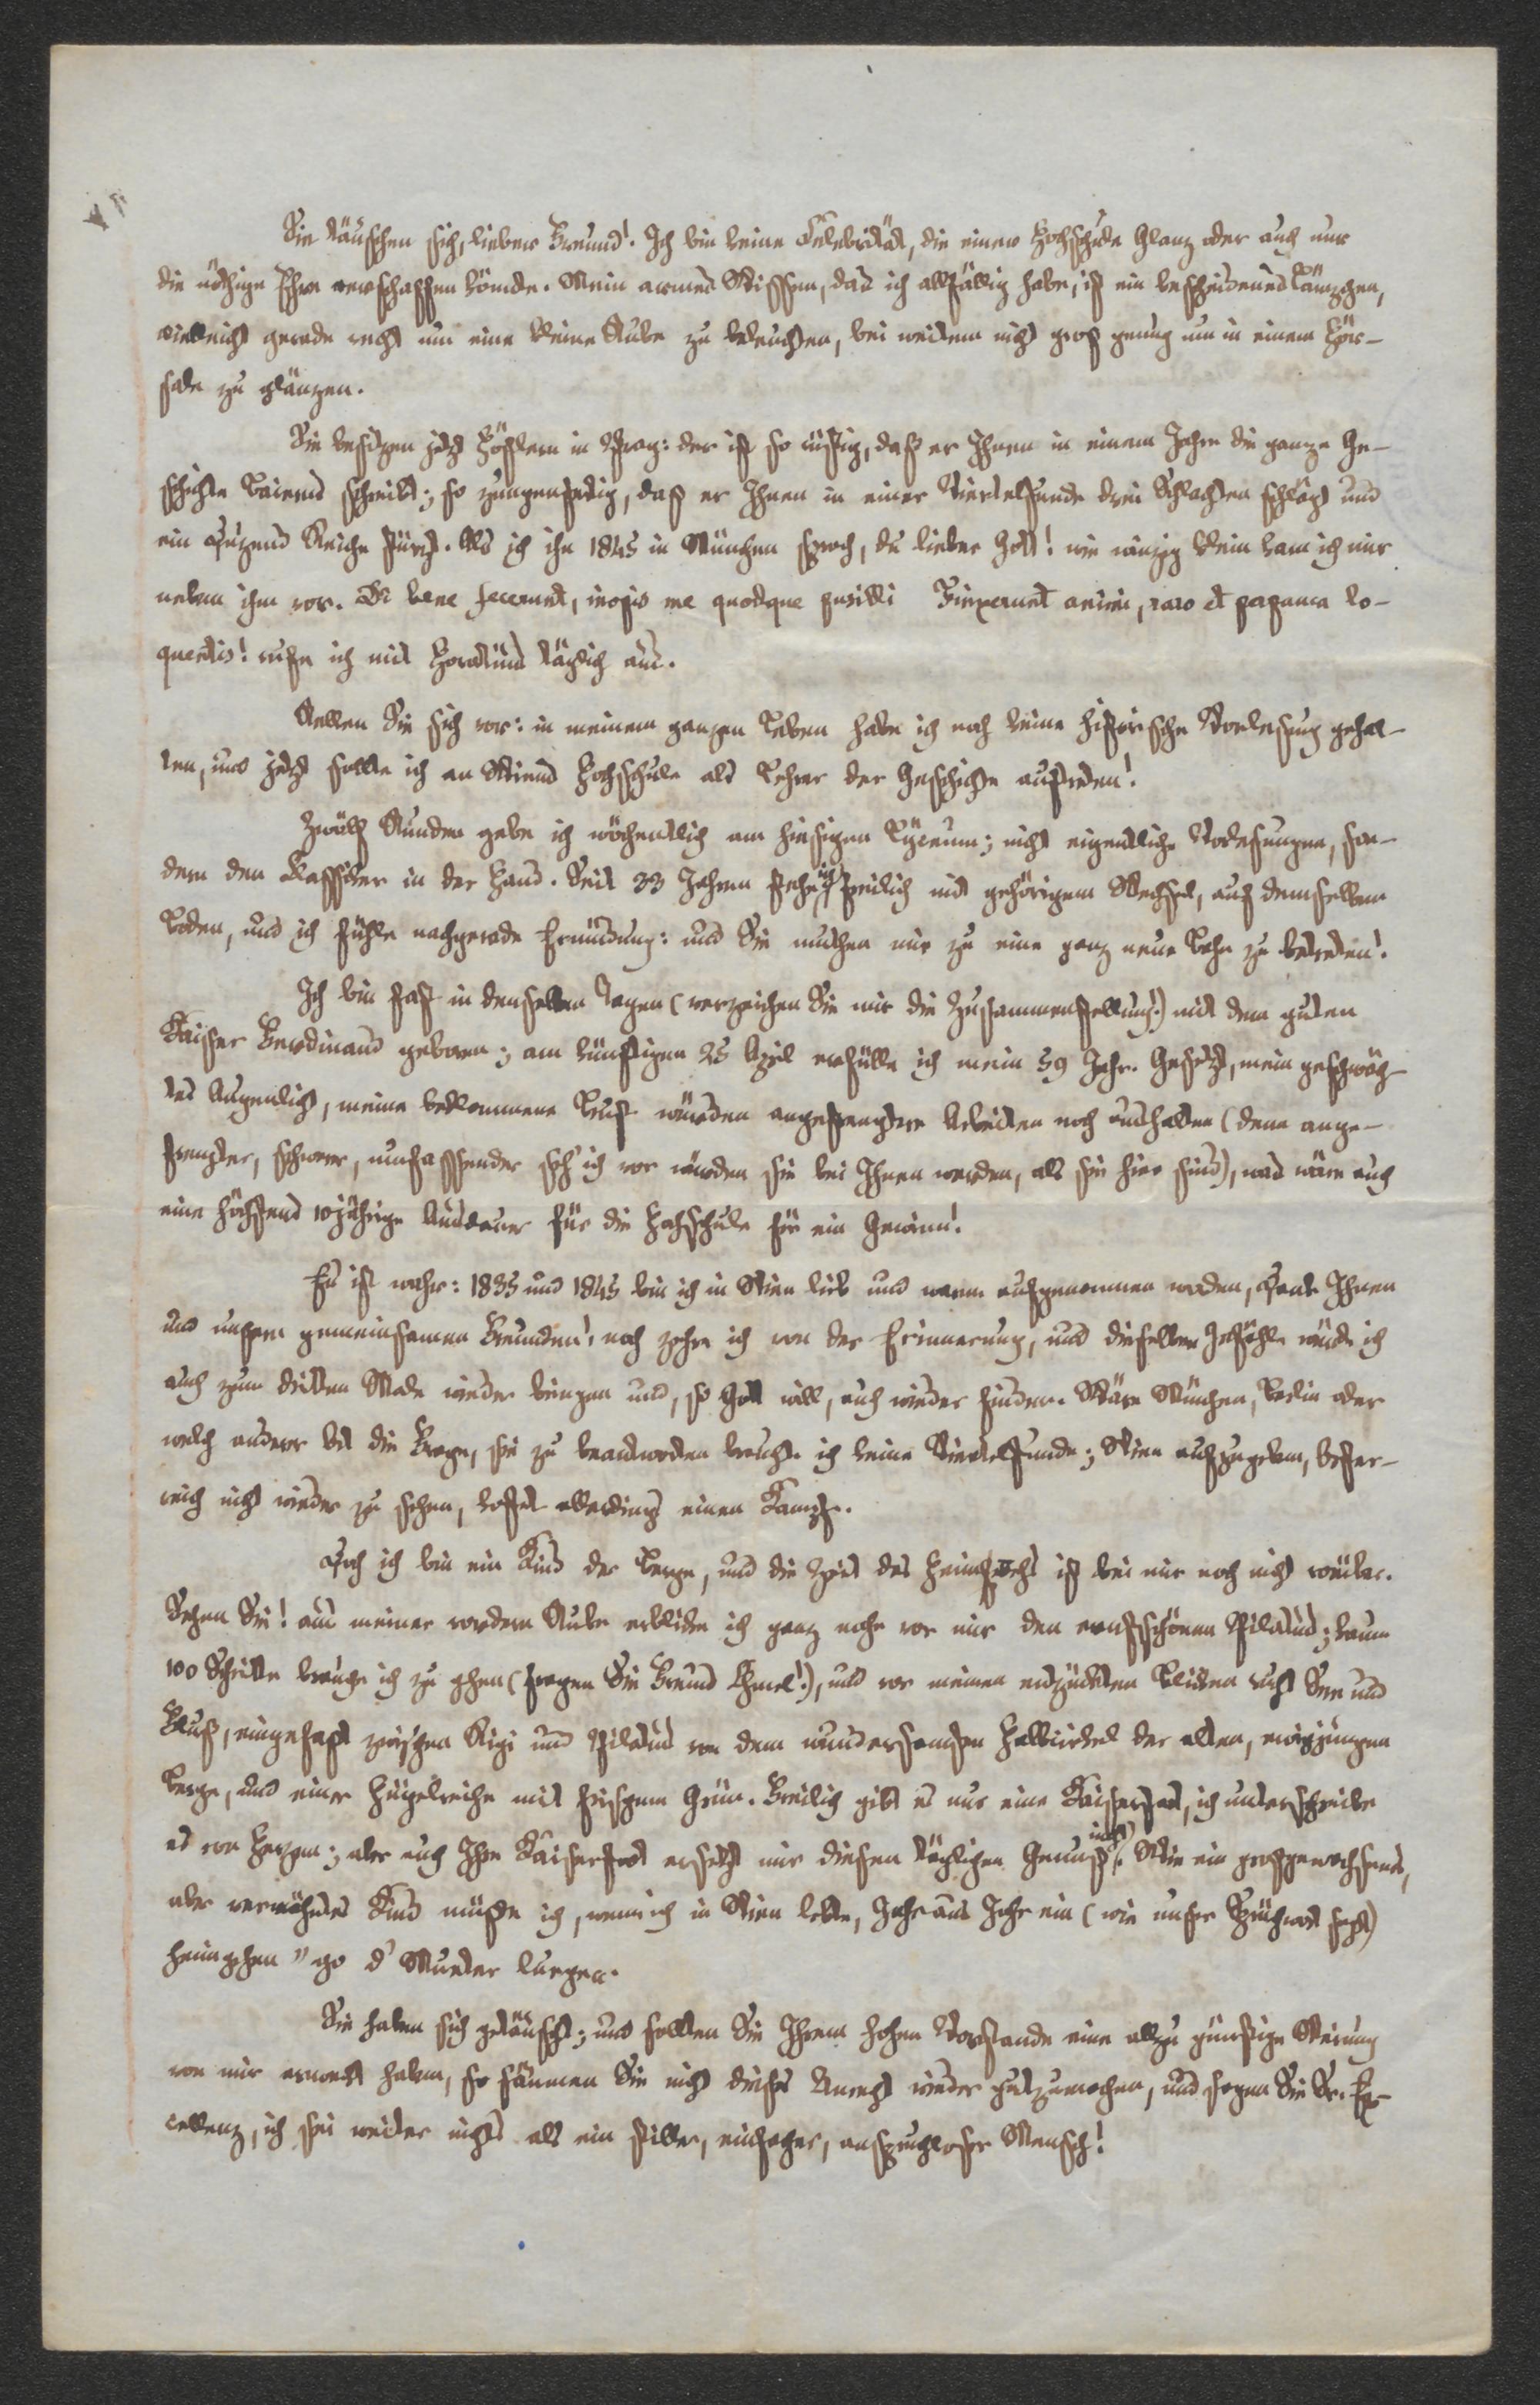 Sie täuschen sich, lieber Freund! Ich bin keine Celebrität, die einer Hochschule Glanz oder auch nur
die nöthige Ehre verschaffen könnte. Mein armes Wissen, das ich allfällig habe, ist ein bescheidenes Lämpchen,
vielleicht gerade recht um eine kleine Stube zu beleuchten, bei weitem nicht groß genug um in einem Hör-
sale zu glänzen.
Sie besitzen jetzt Höflern in Prag: der ist so rüstig, daß er Ihnen in einem Jahre die ganze Ge-
schichte Baierns schreibt; so zungenfertig, daß er Ihnen in einer Viertelstunde drei Schlachten schlägt und
ein Duzend Reiche stürzt. Als ich ihn 1845 in München sprach, du lieber Gott! wie winzig klein kam ich mir
neben ihm vor. Di bene fecerunt, inopis me quodque pusilli Finxerunt animi, raro et perpauca lo-
quentis! rufe ich mit Horatius täglich aus.
Stellen Sie sich vor: in meinem ganzen Leben habe ich noch keine historische Vorlesung gehal-
ten, und jetzt sollte ich an Wiens Hochschule als Lehrer der Geschichte auftreten!
Zwölf Stunden gebe ich wöchentlich am hiesigen Lyceum; nicht eigentliche Vorlesungen, son-
dern den Klassiker in der Hand. Seit 33 Jahren stehe ich, freilich mit gehörigem Wechsel, auf demselben
Boden, und ich fühle nachgerade Ermüdung: und Sie muthen mir zu eine ganz neue Bahn zu betreten!
Ich bin fast in denselben Tagen (verzeihen Sie mir die Zusammenstellung!) mit dem guten
Kaiser Ferdinand geboren; am künftigen 25 April erfülle ich mein 59 Jahr. Gesetzt, mein geschwäch-
tes Augenlicht, meine beklommene Brust würden angestrengtere Arbeiten noch aushalten (denn ange-
strengter, schwerer, umfassender seh' ich vor würden sie bei Ihnen werden, als sie hier sind), was wäre auch
eine höchstens 10jährige Ausdauer für die Hochschule für ein Gewinn!
Es ist wahr: 1835 und 1845 bin ich in Wien lieb und warm aufgenommen worden, Dank Ihnen
und unsern gemeinsamen Freunden! noch zehre ich von der Erinnerung, und dieselben Gefühle würde ich
auch zum dritten Male wieder bringen und, so Gott will, auch wieder finden. Wäre München, Berlin oder
welch anderer Ort die Frage, sie zu beantworten brauchte ich keine Viertelstunde; Wien aufzugeben, Oester-
reich nicht wieder zu sehen, kostet allerdings einen Kampf.
Doch ich bin ein Kind der Berge, und die Zeit des Heimwehs ist bei mir noch nicht vorüber.
Sehen Sie! aus meiner vordern Stube erblicke ich ganz nahe vor mir den ernstschönen Pilatus; kaum
100 Schritte brauche ich zu gehen (fragen Sie Freund Chmel!), und vor meinen entzückten Blicken ruht See und
Fluß, eingefaßt zwischen Rigi und Pilatus von dem wundersamsten Halbcirkel der alten, ewigjungen
Berge, und einer Hügelreihe mit frischem Grün. Freilich gibt es nur eine Kaiserstadt, ich unterschreibe
es von Herzen; aber auch Ihre Kaiserstadt ersetzt mir diesen täglichen Genuß nicht. Wie ein großgewachsenes,
aber verwöhntes Kind müßte ich, wenn ich in Wien lebte, Jahr aus Jahr ein (wie unser Sprüchwort sagt)
heimgehen "go d' Mueter luegen.
Sie haben sich getäuscht; und sollten Sie Ihrem hohen Vorstande eine allzu günstige Meinung
von mir erweckt haben, so säumen Sie nicht dieses Unrecht wieder gutzumachen, und sagen Sie Sr. Ex-
cellenz, ich sei weiter nichts als ein stiller, einfacher, anspruchloser Mensch!